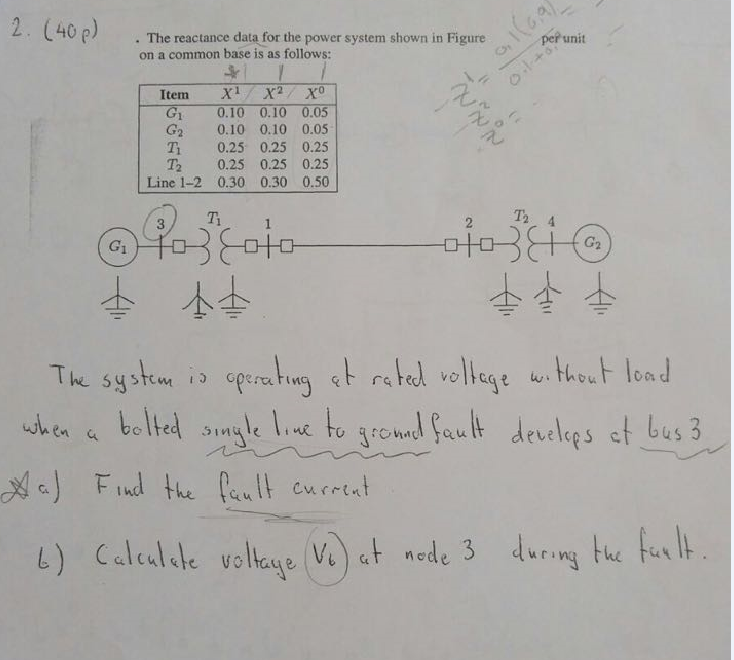 2. (40 p)
. The reactance data for the power system shown in Figure per unit
on a common base is as follows:
Item X¹ X² X⁰
G₁ 0.10 0.10 0.05
G₂ 0.10 0.10 0.05
T₁ 0.25 0.25 0.25
T₂ 0.25 0.25 0.25
Line 1–2 0.30 0.30 0.50
3 T₁ 1 2 T₂ 4
G₁ G₂
The system is operating at rated voltage without load
when a bolted single line to ground fault develops at bus 3
a) Find the fault current
b) Calculate voltage Vb at node 3 during the fault.